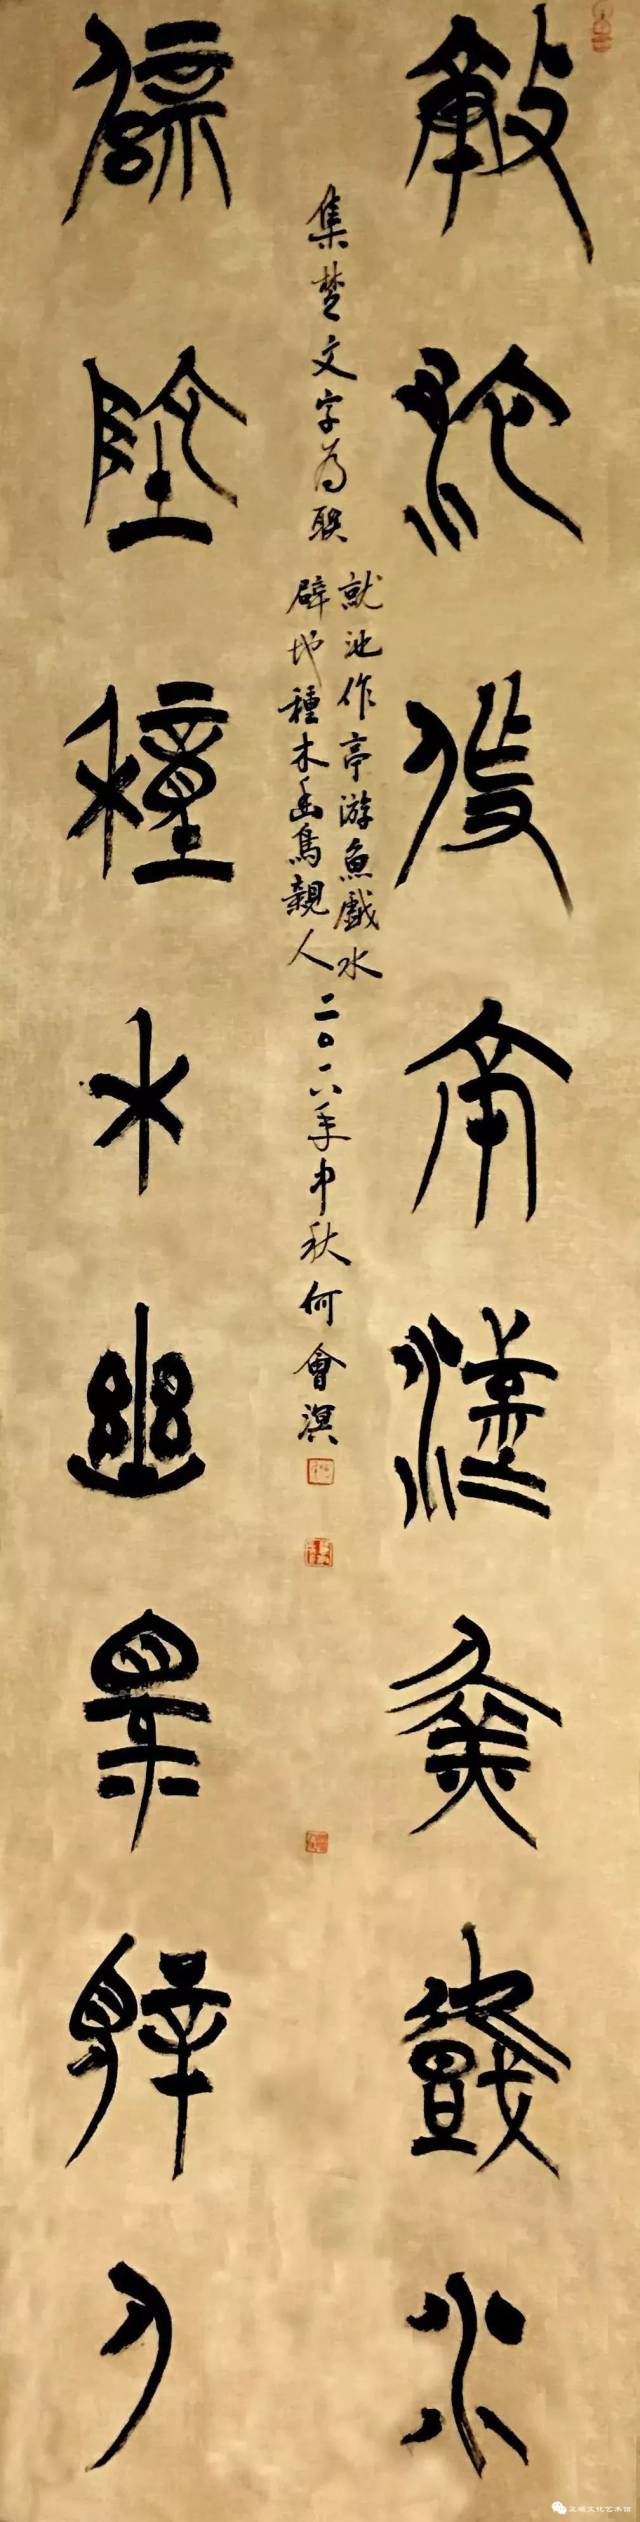 就池作亭游魚戲水
辟地種木幽鳥親人
集楚文字為联
就池作亭游魚戲水
辟地種木幽鳥親人
二〇一六年中秋何會溟